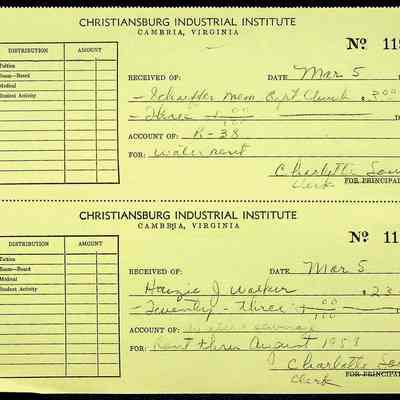 CHRISTIANSBURG INDUSTRIAL INSTITUTE
CAMBRIA, VIRGINIA
Nº 11
DISTRIBUTION AMOUNT
Tuition
Room—Board
Medical
Student Activity
RECEIVED OF: DATE Mar 5
Schaeffer Mem Bapt Church 3.00
Three 00/100
ACCOUNT OF: R-38
FOR: Water rent
Charlotte
Clerk FOR PRINCIPAL
CHRISTIANSBURG INDUSTRIAL INSTITUTE
CAMBRIA, VIRGINIA
Nº 11
DISTRIBUTION AMOUNT
Tuition
Room—Board
Medical
Student Activity
RECEIVED OF: DATE Mar 5
J Walker 23
Twenty-three 00/100
ACCOUNT OF:
FOR: Rent thru August 1958
Charlotte
Clerk FOR PRINCIPAL